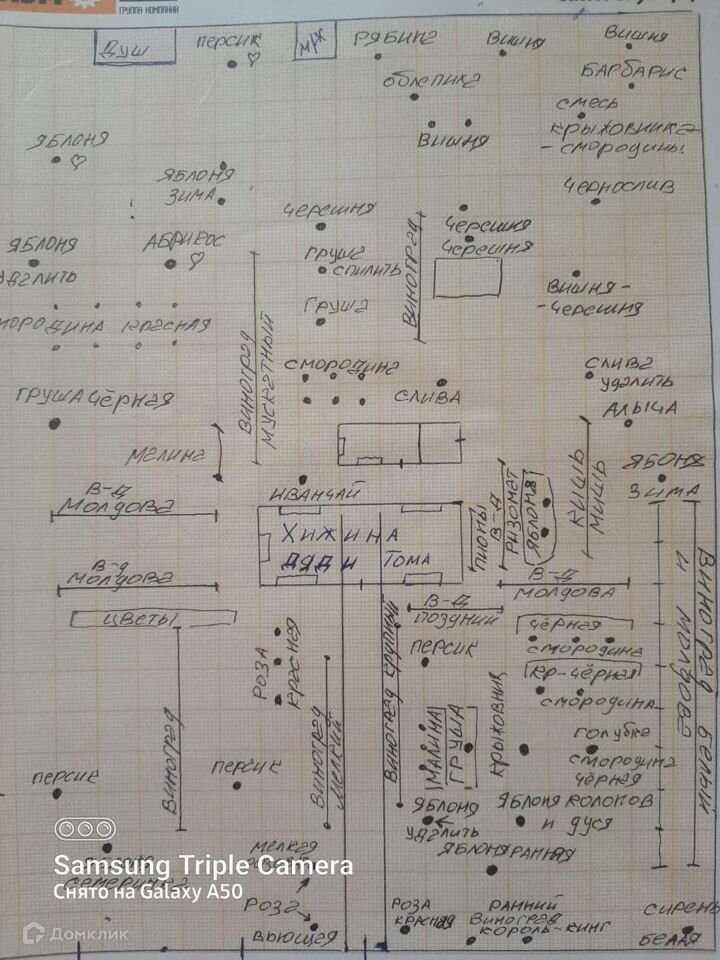 ГРУППА КОМПАНИЙ
ДУШ
ПЕРСИК
МРК
РЯБИНА
ВИШНЯ
ВИШНЯ
ОБЛЕПИХА
БАРБАРИС
СМЕСЬ
КРЫЖОВНИКА
-СМОРОДИНЫ
ВИШНЯ
ЯБЛОНЯ
ЯБЛОНЯ
ЗИМА
ЧЕРНОСЛИВ
ЧЕРЕШНЯ
ЧЕРЕШНЯ
ЧЕРЕШНЯ
ВИНОГРАД
ЯБЛОНЯ
УДАЛИТЬ
АБРИКОС
ГРУША
СПИЛИТЬ
ГРУША
ВИШНЯ-
-ЧЕРЕШНЯ
МОРОДИНА КРАСНАЯ
ВИНОГРАД
МУСКАТНЫЙ
СМОРОДИНА
СЛИВА
СЛИВА
УДАЛИТЬ
АЛЫЧА
ГРУША ЧЁРНАЯ
МАЛИНА
ЯБОНЯ
ЗИМА
В-Д
МОЛДОВА
ИВАНЧАЙ
ХИЖИНА
ДЯДИ ТОМА
ПИОНЫ
В-Д
РИЗОМАТ
ЯБЛОНЯ
КИШЬ
МИШЬ
В-Д
МОЛДОВА
В-Д
МОЛДОВА
ЦВЕТЫ
В-Д
ПОЗДНИЙ
ПЕРСИК
ЧЁРНАЯ
СМОРОДИНА
КР-ЧЁРНАЯ
СМОРОДИНА
ВИНОГРАД БЕЛЫЙ
И МОЛДОВА
РОЗА
КРАСНАЯ
ВИНОГРАД
ВИНОГРАД
МЕЛКИЙ
ВИНОГРАД КРУПНЫЙ
МАЛИНА
ГРУША
КРЫЖОВНИК
ГОЛУБКА
СМОРОДИНА
ЧЁРНАЯ
ПЕРСИК
ПЕРСИК
ЯБЛОНЯ
УДАЛИТЬ
ЯБЛОНЯ КОЛОПОВ
И ДУСЯ
ЯБЛОНЯ РАННЯЯ
МЕЛКАЯ
СЕМЕРИНКА
РОЗА
ВЬЮЩАЯ
РОЗА
КРАСНАЯ
РАННИЙ
ВИНОГРАД
КОРОЛЬ-КИНГ
СИРЕНЬ
БЕЛАЯ
Samsung Triple Camera
Снято на Galaxy A50
Домклик